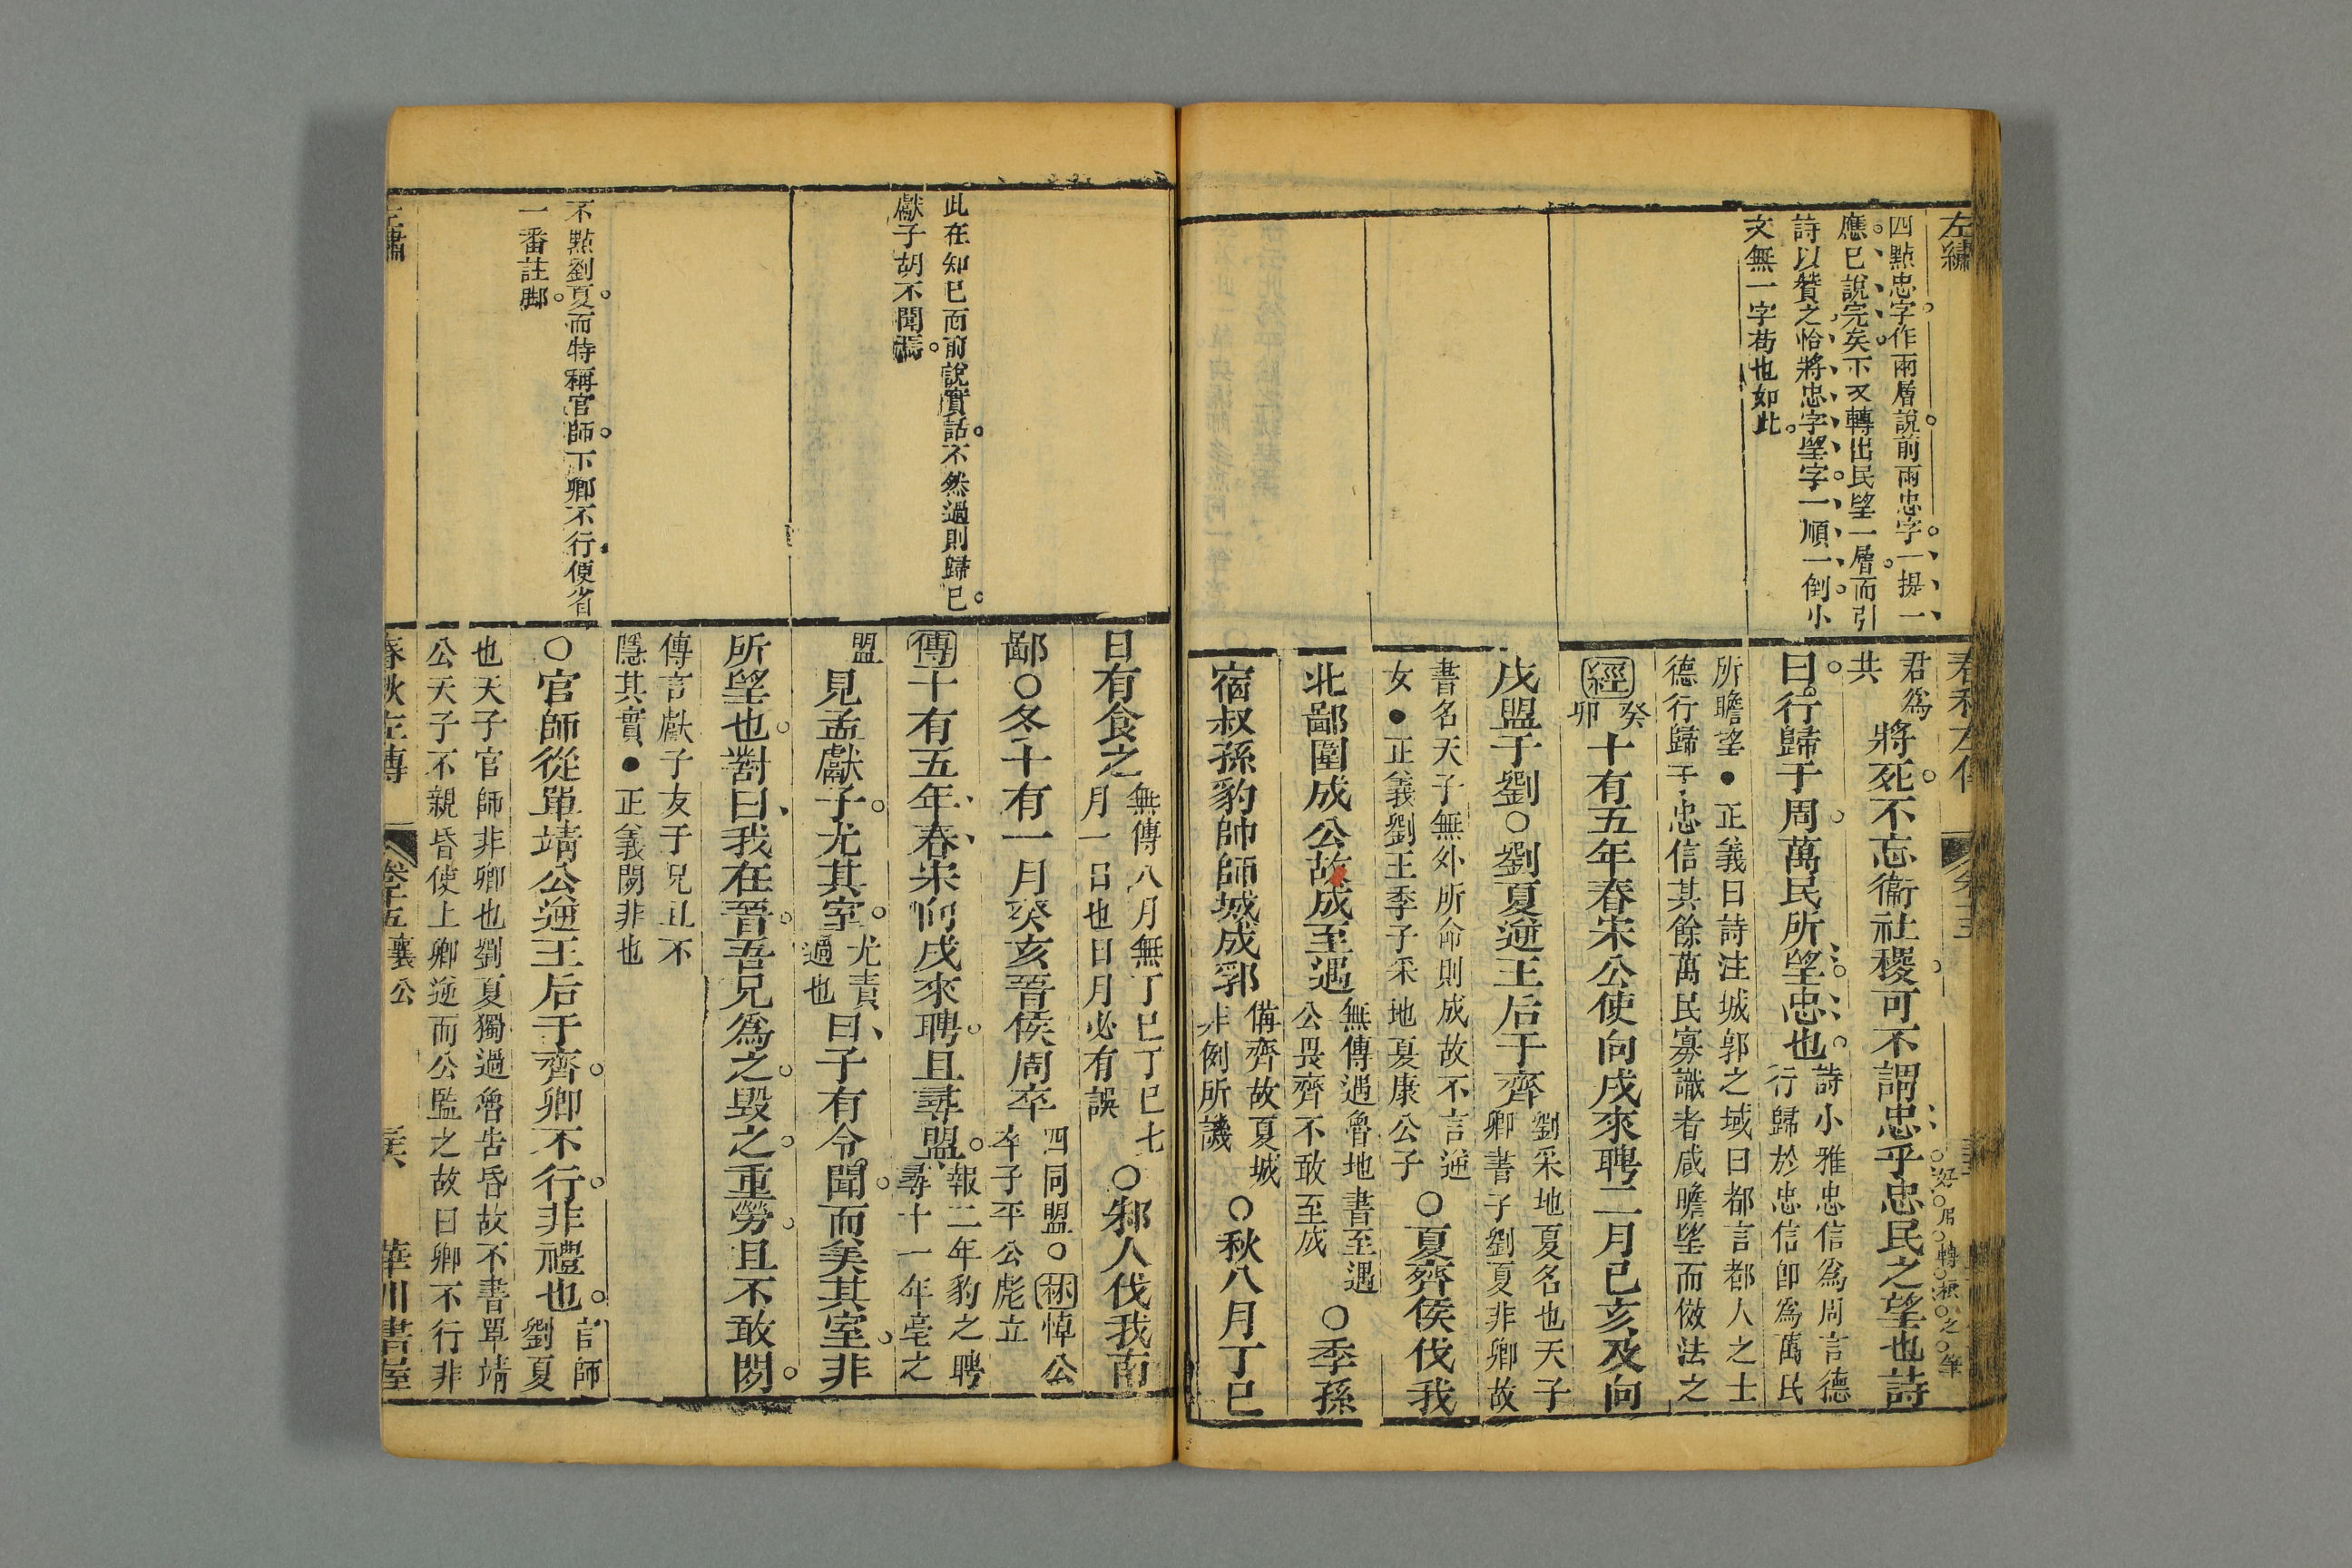 左繡
四點忠字作兩層說前兩忠字一提一
應已說完矣下又轉出民望一層而引
詩以贊之恰將忠字望字一順一倒小
文無一字苟也如此
春秋左傳
君為
共
將死不忘衞社稷可不謂忠乎忠民之望也詩
好居轉 之筆
曰行歸于周萬民所望忠也
詩小雅忠信為周言德
行歸於忠信卽為萬民
所瞻望●正義曰詩注城郭之域曰都言都人之士
德行歸于忠信其餘萬民寡識者咸瞻望而倣法之
經
癸
卯
十有五年春宋公使向戌來聘二月己亥及向
戌盟于劉○劉夏逆王后于齊
劉采地夏名也天子
卿書子劉夏非卿故
書名天子無外所命則成故不言逆
女●正義劉王季子采地夏康公子
○夏齊侯伐我
北鄙圍成公救成至遇
無傳遇魯地書至遇
公畏齊不敢至成
○季孫
宿叔孫豹帥師城成郛
備齊故夏城
非例所譏
○秋八月丁巳
日有食之
無傳八月無丁巳丁巳七
月一日也日月必有誤
○邾人伐我南
鄙○冬十有一月癸亥晉侯周卒
四同盟○林悼公
卒子平公彪立
傳十有五年春宋向戌來聘且尋盟
報二年豹之聘
尋十一年亳之
盟
見孟獻子尤其室
尤責
過也
曰子有令聞而美其室非
所望也對曰我在晉吾兄為之毀之重勞且不敢閒
傳言獻子友于兄且不
隱其實●正義閒非也
○官師從單靖公逆王后于齊卿不行非禮也
官師
劉夏
也天子官師非卿也劉夏獨過魯告昏故不書單靖
公天子不親昏使上卿逆而公監之故曰卿不行非
此在知己面前說實話不然過則歸己
獻子胡不聞焉
不點劉夏而特稱官師下卿不行便省
一番註脚
左繡
春秋左傳
卷十五
襄公
華川書屋